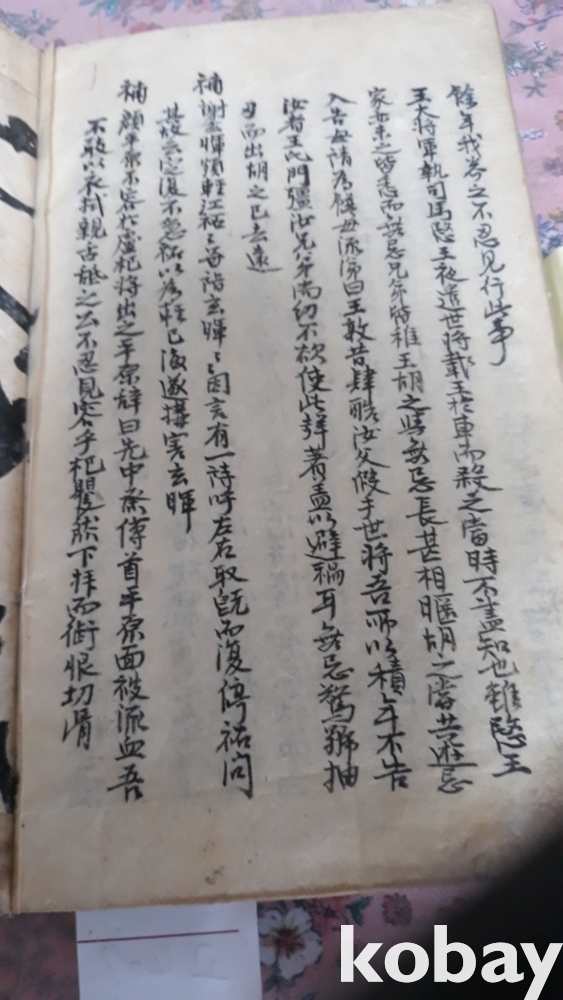 餘年我岑之不忍見行此事
王大將軍執司馬愍王夜遣世將載王於車而殺之當時不盡知也雖愍王
家亦未之皆悉而無忌兄弟皆稚王胡之與無忌長甚相暱胡之嘗共遊忌
入告母請為饌母流涕曰王敦昔肆酷汝父假手世將吾所以積年不告
汝者王氏門彊汝兄弟尚幼不欲使此聲著盖以避禍耳無忌驚號抽
刃而出胡之已去遠
補謝玄暉頻輕江祏祏嘗詣玄暉暉因言有一詩呼左右取旣而復停祏問
其故云定復不急祏以為輕已後遂搆害玄暉
補顔平原不容代盧杞將出之平原辞曰先中丞傳首平原面被流血吾
不敢以衣拭親舌舐之公不忍見容乎杞矍然下拜而銜恨切骨
kobay